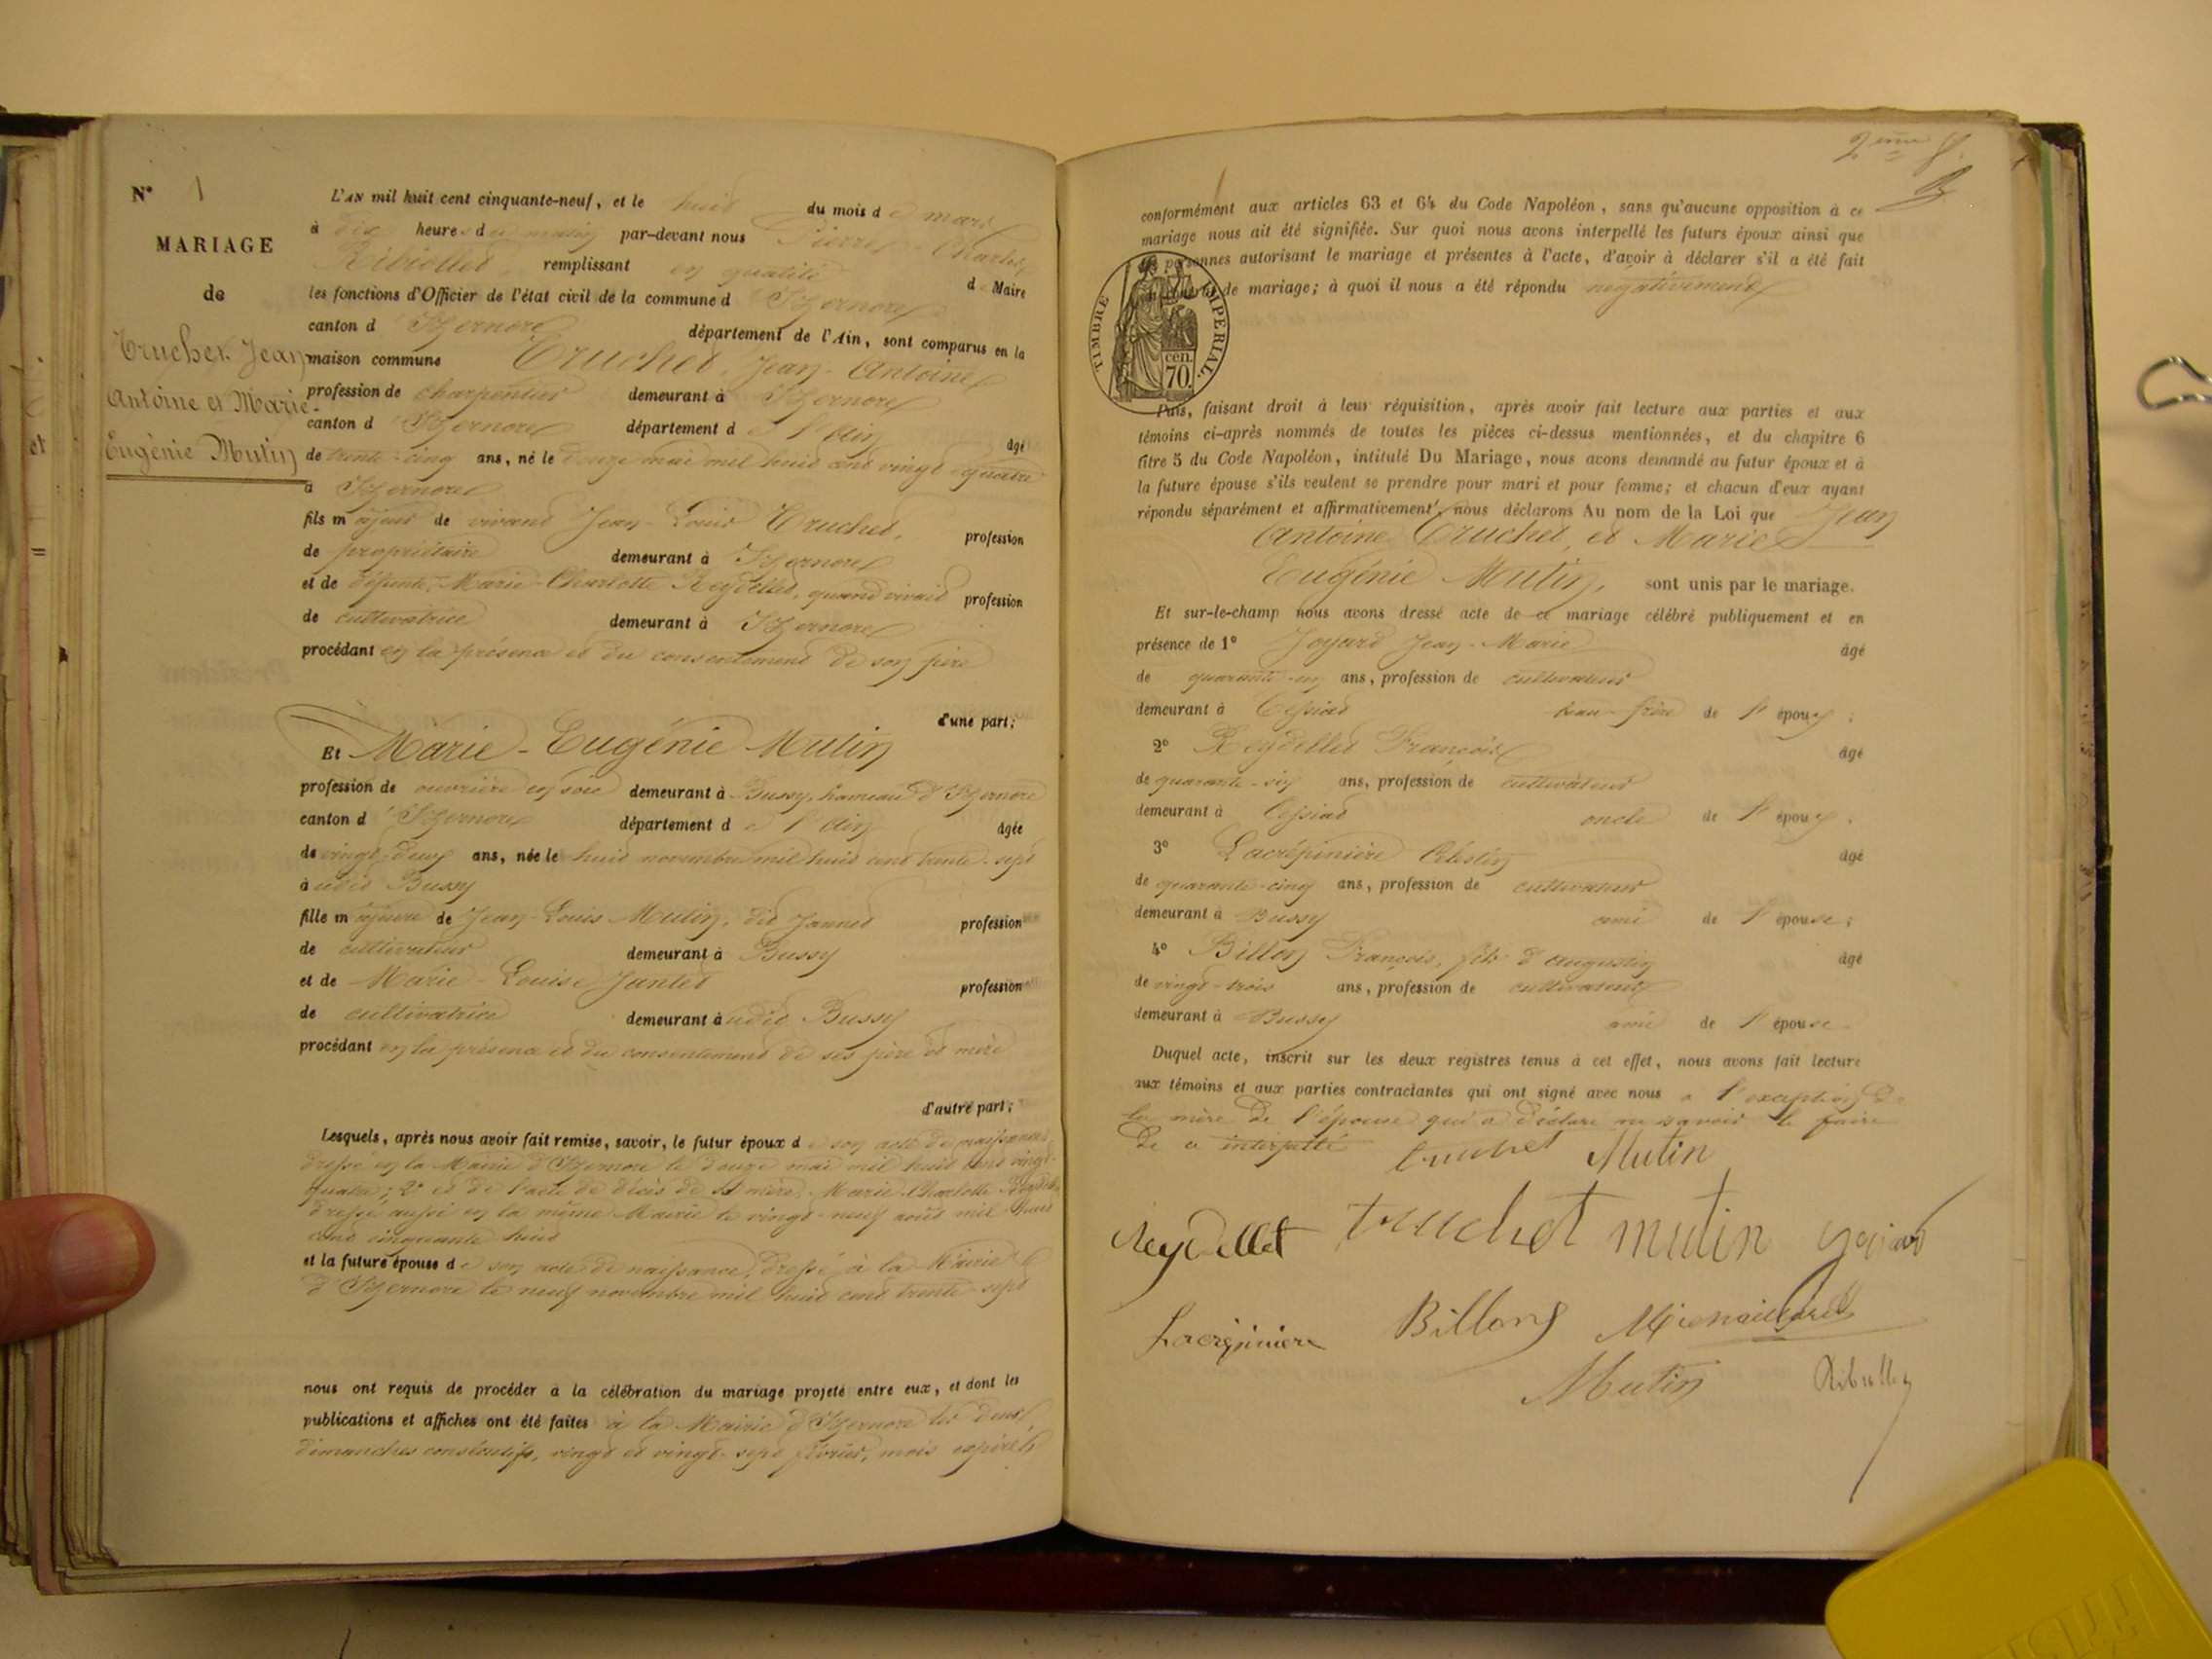 N° 1
MARIAGE
de
Truchet Jean
Antoine et Marie-
Eugénie Mutin
L'AN mil huit cent cinquante-neuf, et le huit du mois d e mars
à dix heures d u matin par-devant nous Pierre Charles
Ribiollet, remplissant en qualité d Maire
les fonctions d'Officier de l'état civil de la commune d 'Izernore
canton d 'Izernore département de l'Ain, sont comparus en la
maison commune Truchet, Jean-Antoine
profession de charpentier demeurant à Izernore
canton d 'Izernore département d e l'Ain âgé
de trente-cinq ans, né le douze mai mil huit cent vingt quatre
à Izernore
fils majeur de vivant Jean-Louis Truchet, profession
de propriétaire demeurant à Izernore
et de défunte Marie-Charlotte Reydellet, quand vivait profession
de cultivatrice demeurant à Izernore
procédant en la présence et du consentement de son père
d'une part;
Et Marie-Eugénie Mutin
profession de ouvrière en soie demeurant à Bussy, hameau d'Izernore
canton d 'Izernore département d e l'Ain âgée
de vingt-deux ans, née le huit novembre mil huit cent trente-sept
à udit Bussy
fille majeure de Jean-Louis Mutin, dit Jannet profession
de cultivateur demeurant à Bussy
et de Marie-Louise Jantet profession
de cultivatrice demeurant à udit Bussy
procédant en la présence et du consentement de ses père et mère
d'autre part;
Lesquels, après nous avoir fait remise, savoir, le futur époux d e son acte de naissance
dressé en la Mairie d'Izernore le douze mai mil huit cent vingt-
quatre; 2° et de l'acte de décès de sa mère, Marie-Charlotte Reydellet
dressé aussi en la même Mairie le vingt-neuf août mil huit
cent cinquante huit
et la future épouse d e son acte de naissance, dressé à la Mairie
d'Izernore le neuf novembre mil huit cent trente-sept
nous ont requis de procéder à la célébration du mariage projeté entre eux, et dont les
publications et affiches ont été faites à la Mairie d'Izernore les deux
dimanches consécutifs, vingt et vingt-sept février, mois expiré
2ème f.
conformément aux articles 63 et 64 du Code Napoléon, sans qu'aucune opposition à ce
mariage nous ait été signifiée. Sur quoi nous avons interpellé les futurs époux ainsi que
personnes autorisant le mariage et présentes à l'acte, d'avoir à déclarer s'il a été fait
de mariage; à quoi il nous a été répondu négativement
TIMBRE IMPERIAL
70 cen.
Puis, faisant droit à leur réquisition, après avoir fait lecture aux parties et aux
témoins ci-après nommés de toutes les pièces ci-dessus mentionnées, et du chapitre 6
titre 5 du Code Napoléon, intitulé Du Mariage, nous avons demandé au futur époux et à
la future épouse s'ils veulent se prendre pour mari et pour femme; et chacun d'eux ayant
répondu séparément et affirmativement, nous déclarons Au nom de la Loi que Jean
Antoine Truchet, et Marie
Eugénie Mutin, sont unis par le mariage.
Et sur-le-champ nous avons dressé acte de ce mariage célébré publiquement et en
présence de 1° Joyard Jean-Marie âgé
de quarante-un ans, profession de cultivateur
demeurant à Ceissiat beau-frère de l'époux;
2° Reydellet François âgé
de quarante-six ans, profession de cultivateur
demeurant à Ceissiat oncle de l'époux,
3° Lacrépinière Célestin âgé
de quarante-cinq ans, profession de cultivateur
demeurant à Bussy ami de l'épouse;
4° Billon François, fils d'augustin âgé
de vingt-trois ans, profession de cultivateur
demeurant à Bussy ami de l'épouse
Duquel acte, inscrit sur les deux registres tenus à cet effet, nous avons fait lecture
aux témoins et aux parties contractantes qui ont signé avec nous à l'exception de
la mère de l'épouse qui a déclaré ne savoir le faire
de ce interpellé
truchet Mutin
Reydellet truchet mutin
Lacrepiniere Billon
Mutin